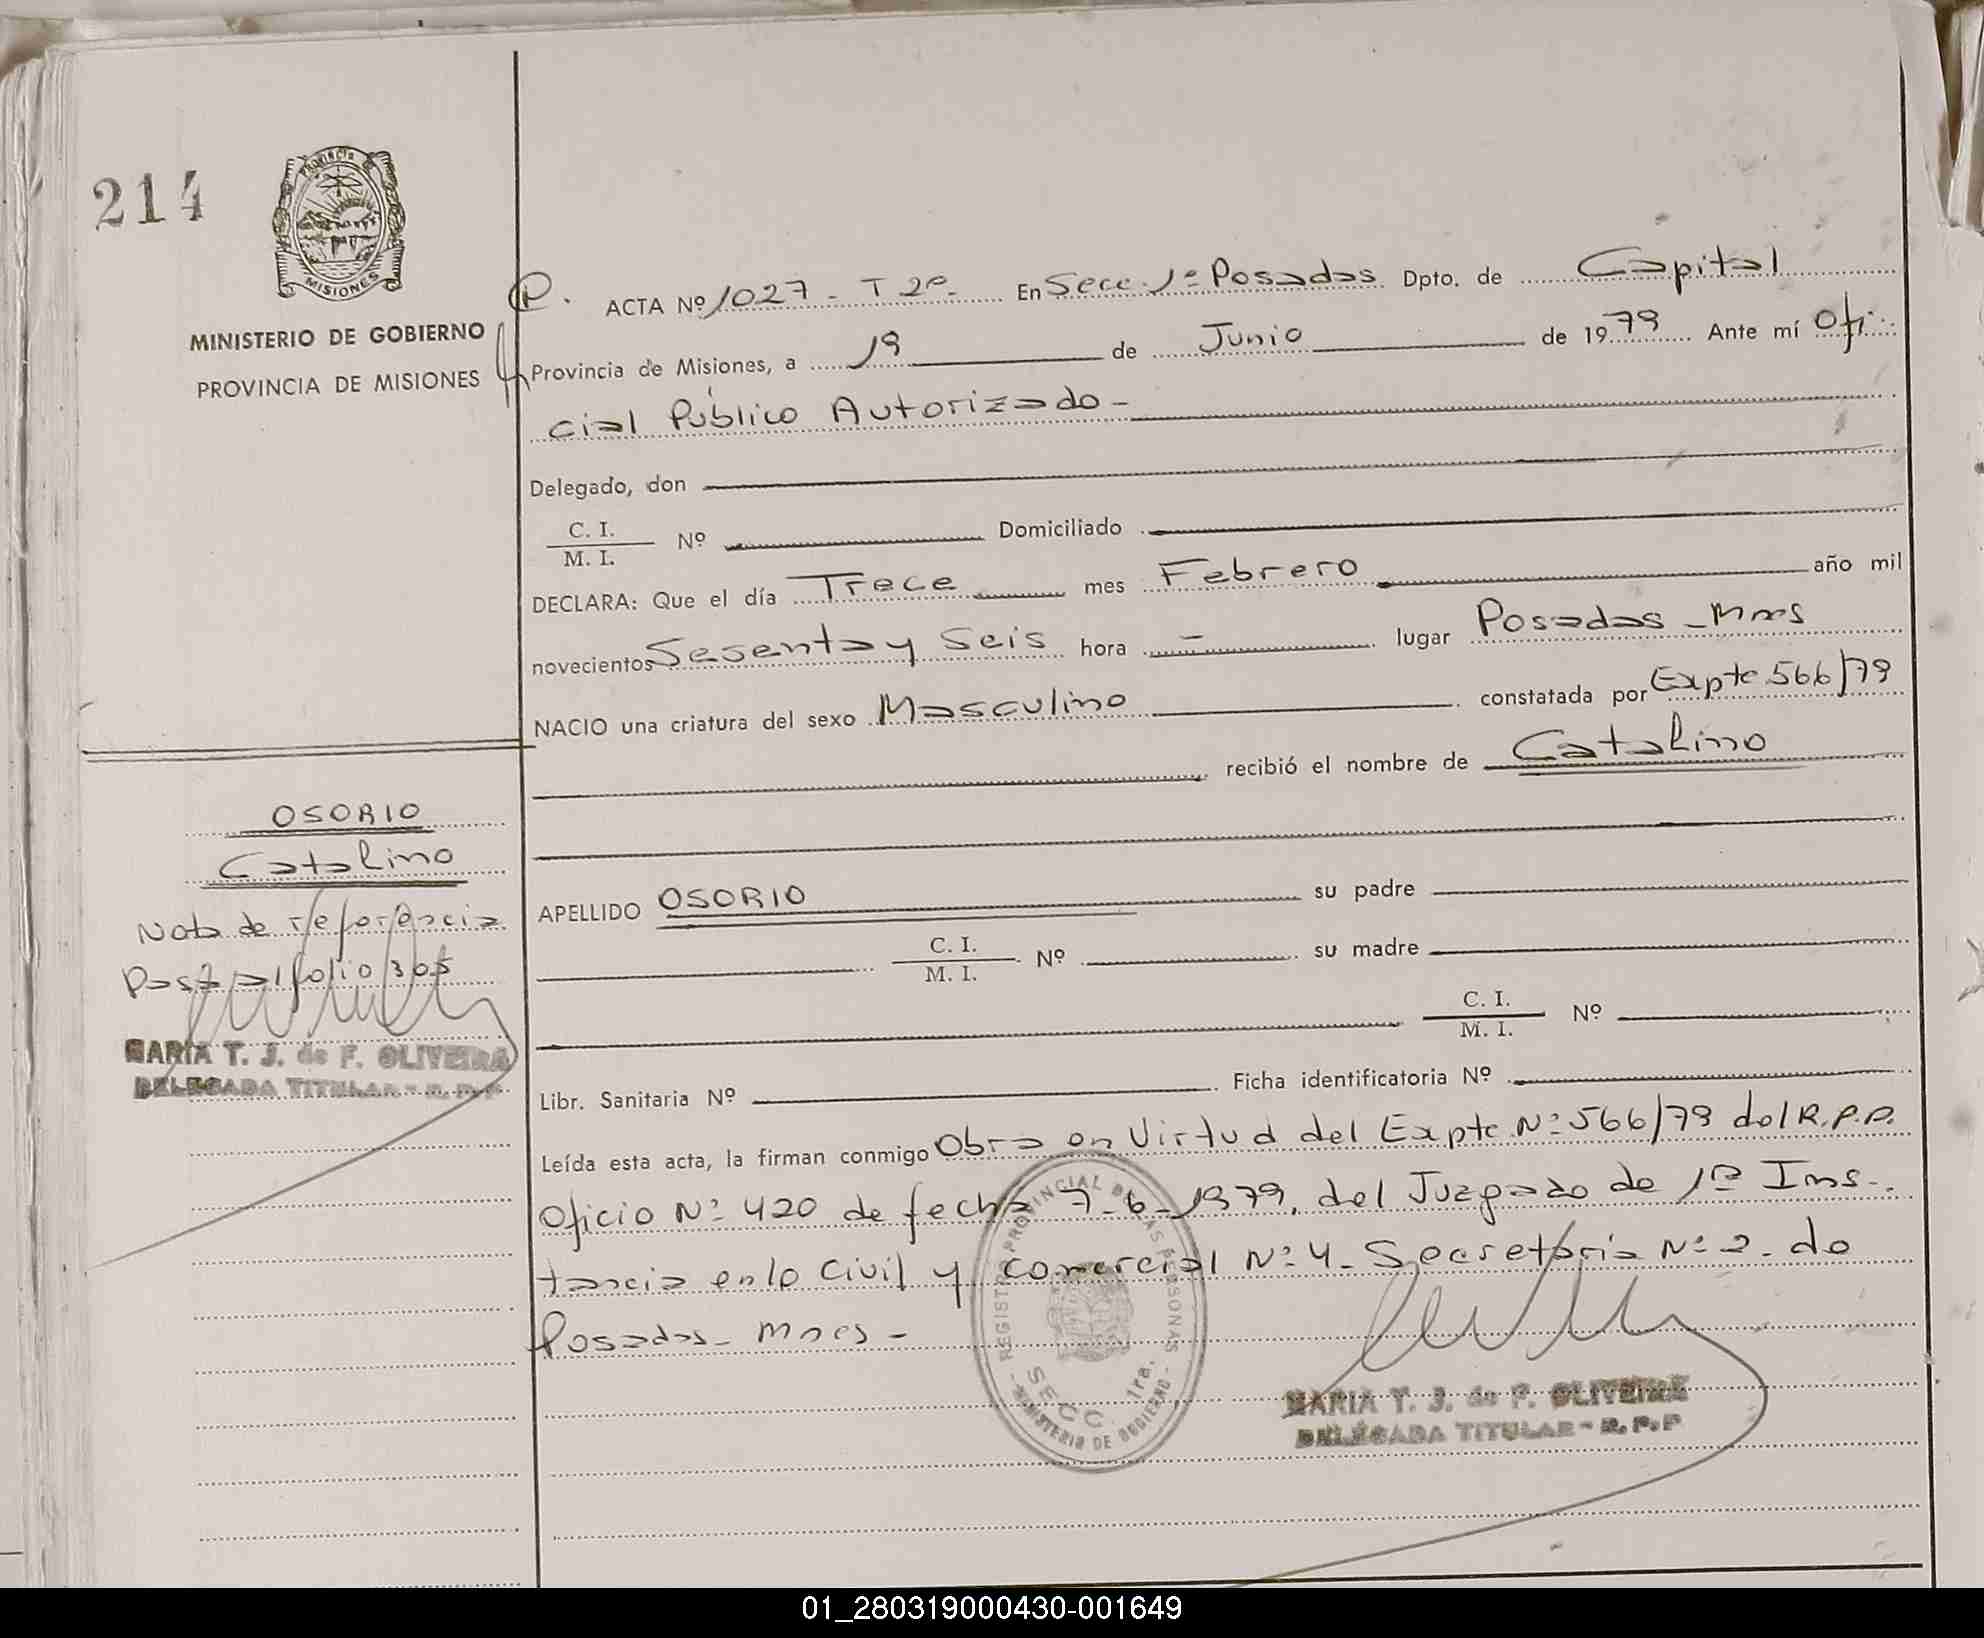 214
PROVINCIA DE
MISIONES
MINISTERIO DE GOBIERNO
PROVINCIA DE MISIONES
ACTA Nº 1027 - T 2º - En Secc. 1ª Posadas Dpto. de Capital
Provincia de Misiones, a 19 de Junio de 1979 Ante mí Ofi
cial Público Autorizado -
Delegado, don
C. I.
M. I. Nº Domiciliado
DECLARA: Que el día Trece mes Febrero año mil
novecientos Sesenta y Seis hora - lugar Posadas - Mnes
NACIO una criatura del sexo Masculino constatada por Expte 566/79
recibió el nombre de Catalino
OSORIO
Catalino
Nota de referencia
Pasa al folio 305
MARIA T. J. de F. OLIVEIRA
DELEGADA TITULAR - R. P. P
APELLIDO OSORIO su padre
C. I.
M. I. Nº su madre
C. I.
M. I. Nº
Libr. Sanitaria Nº Ficha identificatoria Nº
Leída esta acta, la firman conmigo Obra en Virtud del Expte Nº 566/79 del R.P.P.
Oficio Nº 420 de fecha 7-6-1979, del Juzgado de 1ra Ins-
tancia en lo Civil y Comercial Nº 4 - Secretaria Nº 2 - de
Posadas - Mnes -
REGISTRO PROVINCIAL DE LAS PERSONAS
SECC. 1ra.
- MINISTERIO DE GOBIERNO -
MARIA T. J. de F. OLIVEIRA
DELEGADA TITULAR - R. P. P
01_280319000430-001649